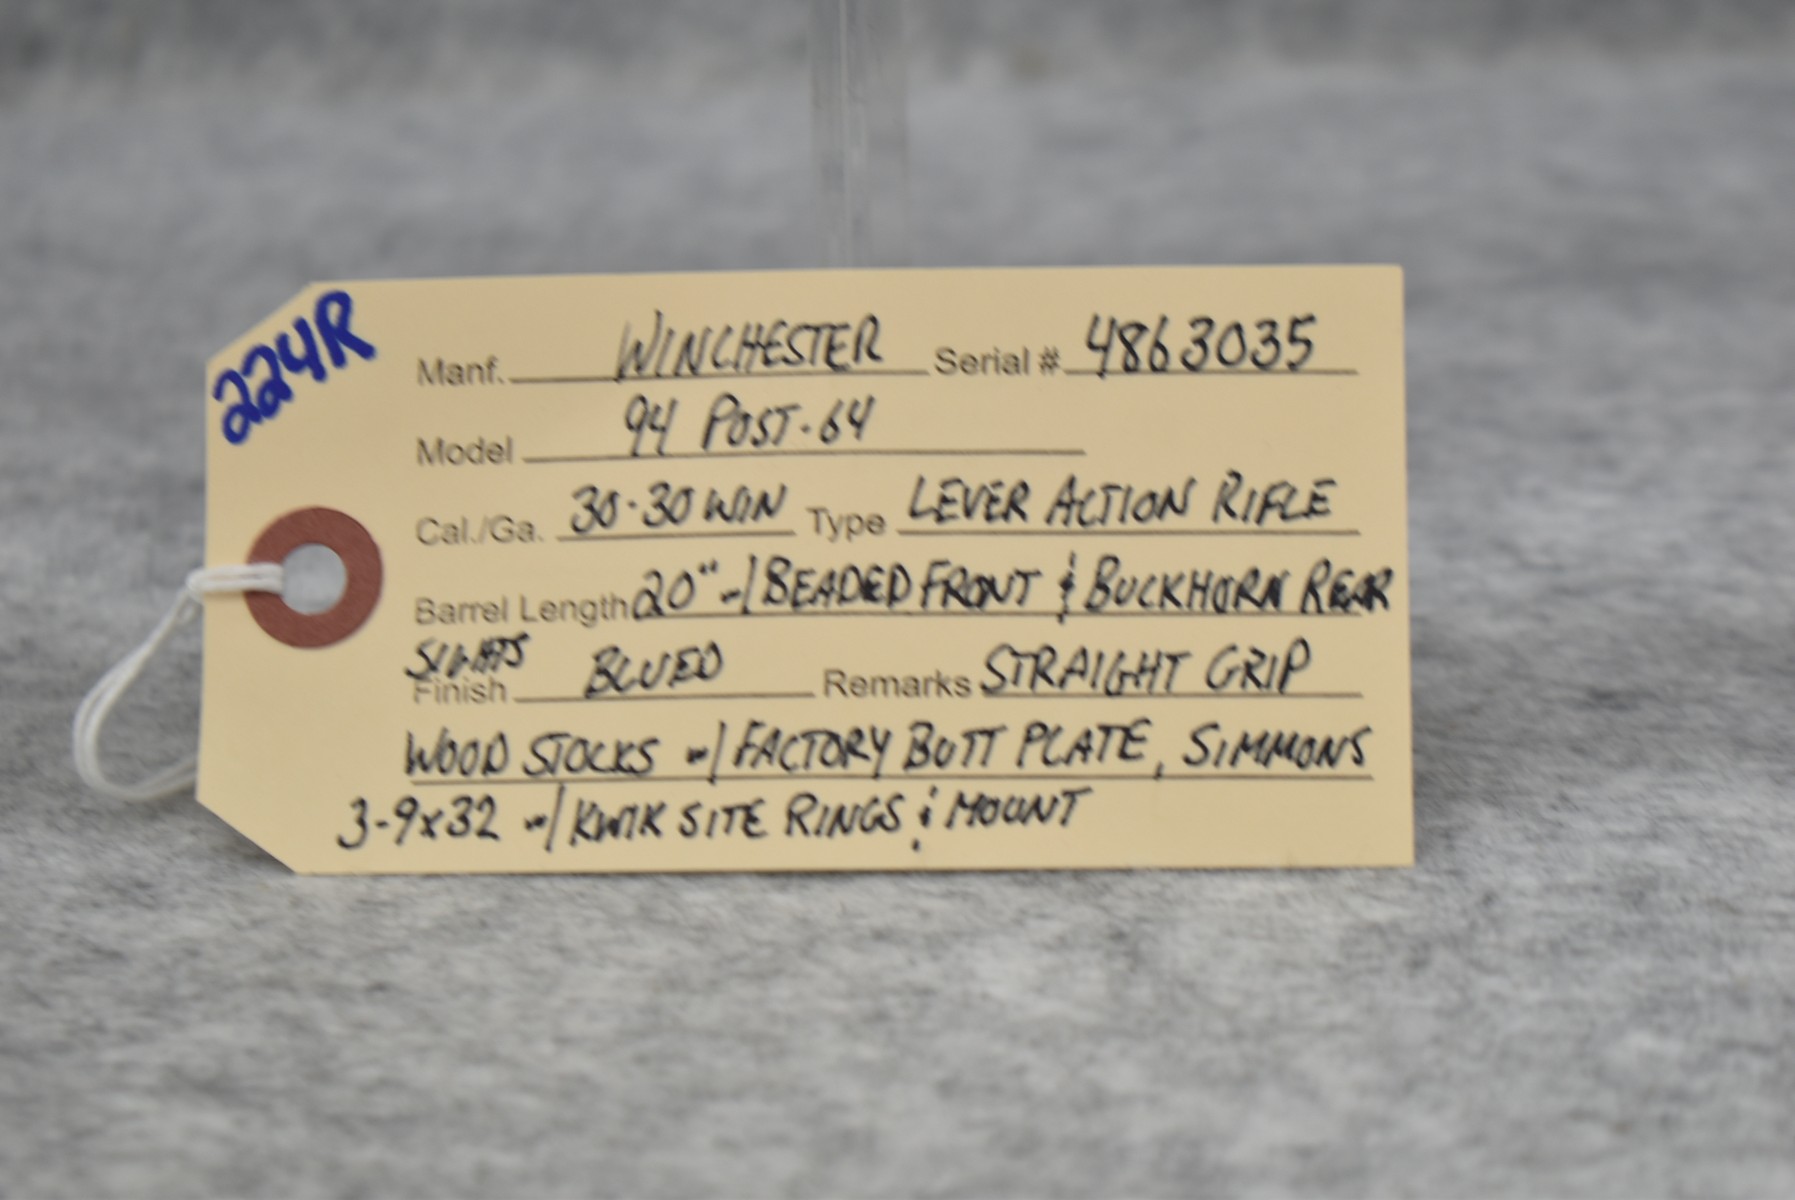 224R
Manf. WINCHESTER Serial # 4863035
Model 94 POST-64
Cal./Ga. 30-30 WIN Type LEVER ACTION RIFLE
Barrel Length 20" w/ BEADED FRONT & BUCKHORN REAR
SIGHTS
Finish BLUED Remarks STRAIGHT GRIP
WOOD STOCKS w/ FACTORY BUTT PLATE, SIMMONS
3-9x32 w/ KWIK SITE RINGS & MOUNT